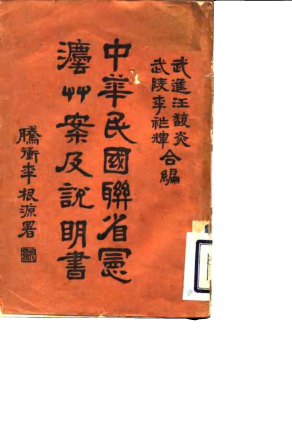 武進汪馥炎
武陵李祚輝合編
中華民國聯省憲
灋艸案及說明書
騰衝李根源署